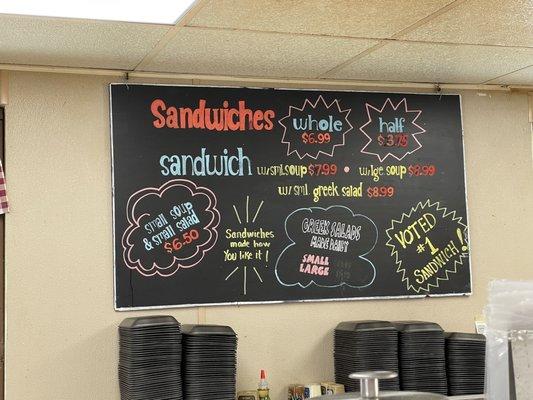 Sandwiches
whole
$6.99
half
$3.75
sandwich w/sml. soup $7.99 • w/lge. soup $8.99
w/sml. greek salad $8.99
small soup
& small salad
$6.50
Sandwiches
made how
You like it!
GREEK SALADS
MADE DAILY
SMALL
LARGE
VOTED
#1
SANDWICH!